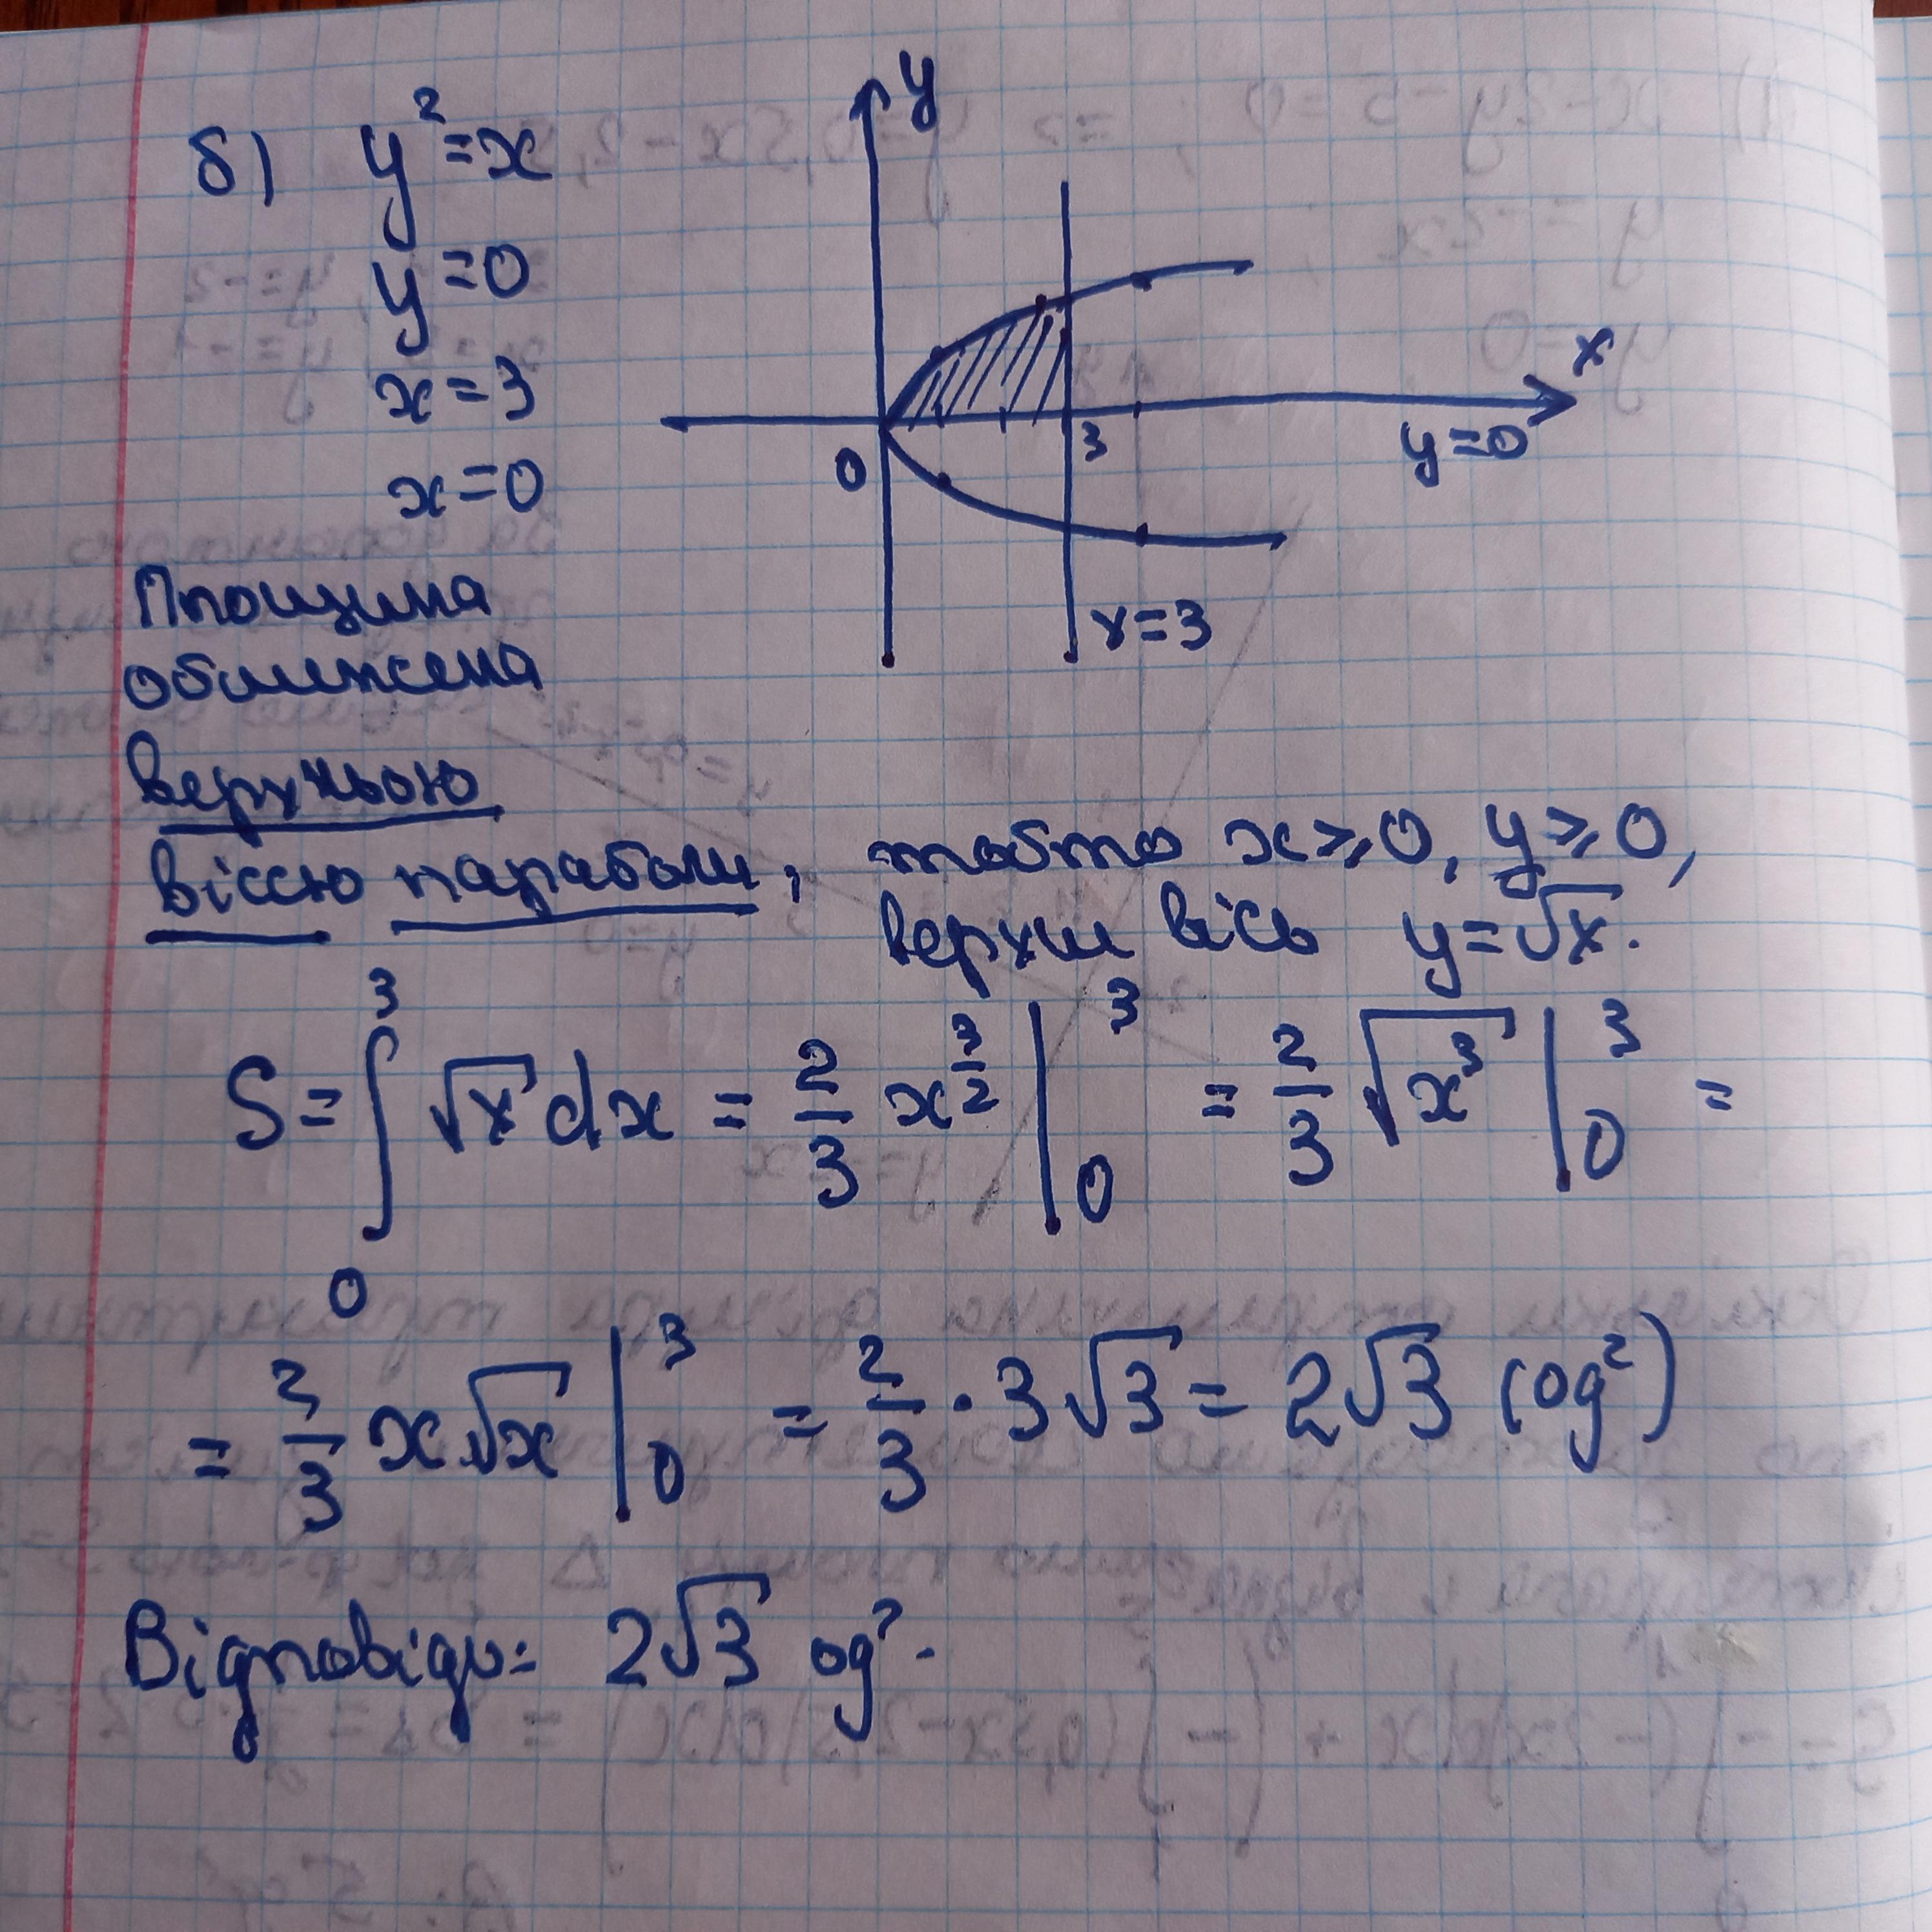 б) y² = x
y = 0
x = 3
x = 0
y
x
0
3
y = 0
x = 3
Площина
обмежена
верхньою
віссю параболи, тобто x ⩾ 0, y ⩾ 0,
верхня вісь y = √x.
S = ∫₀³ √x dx = 2/3 x^(3/2) |₀³ = 2/3 √(x³) |₀³ =
= 2/3 x√x |₀³ = 2/3 · 3√3 = 2√3 (од²)
Відповідь: 2√3 од².